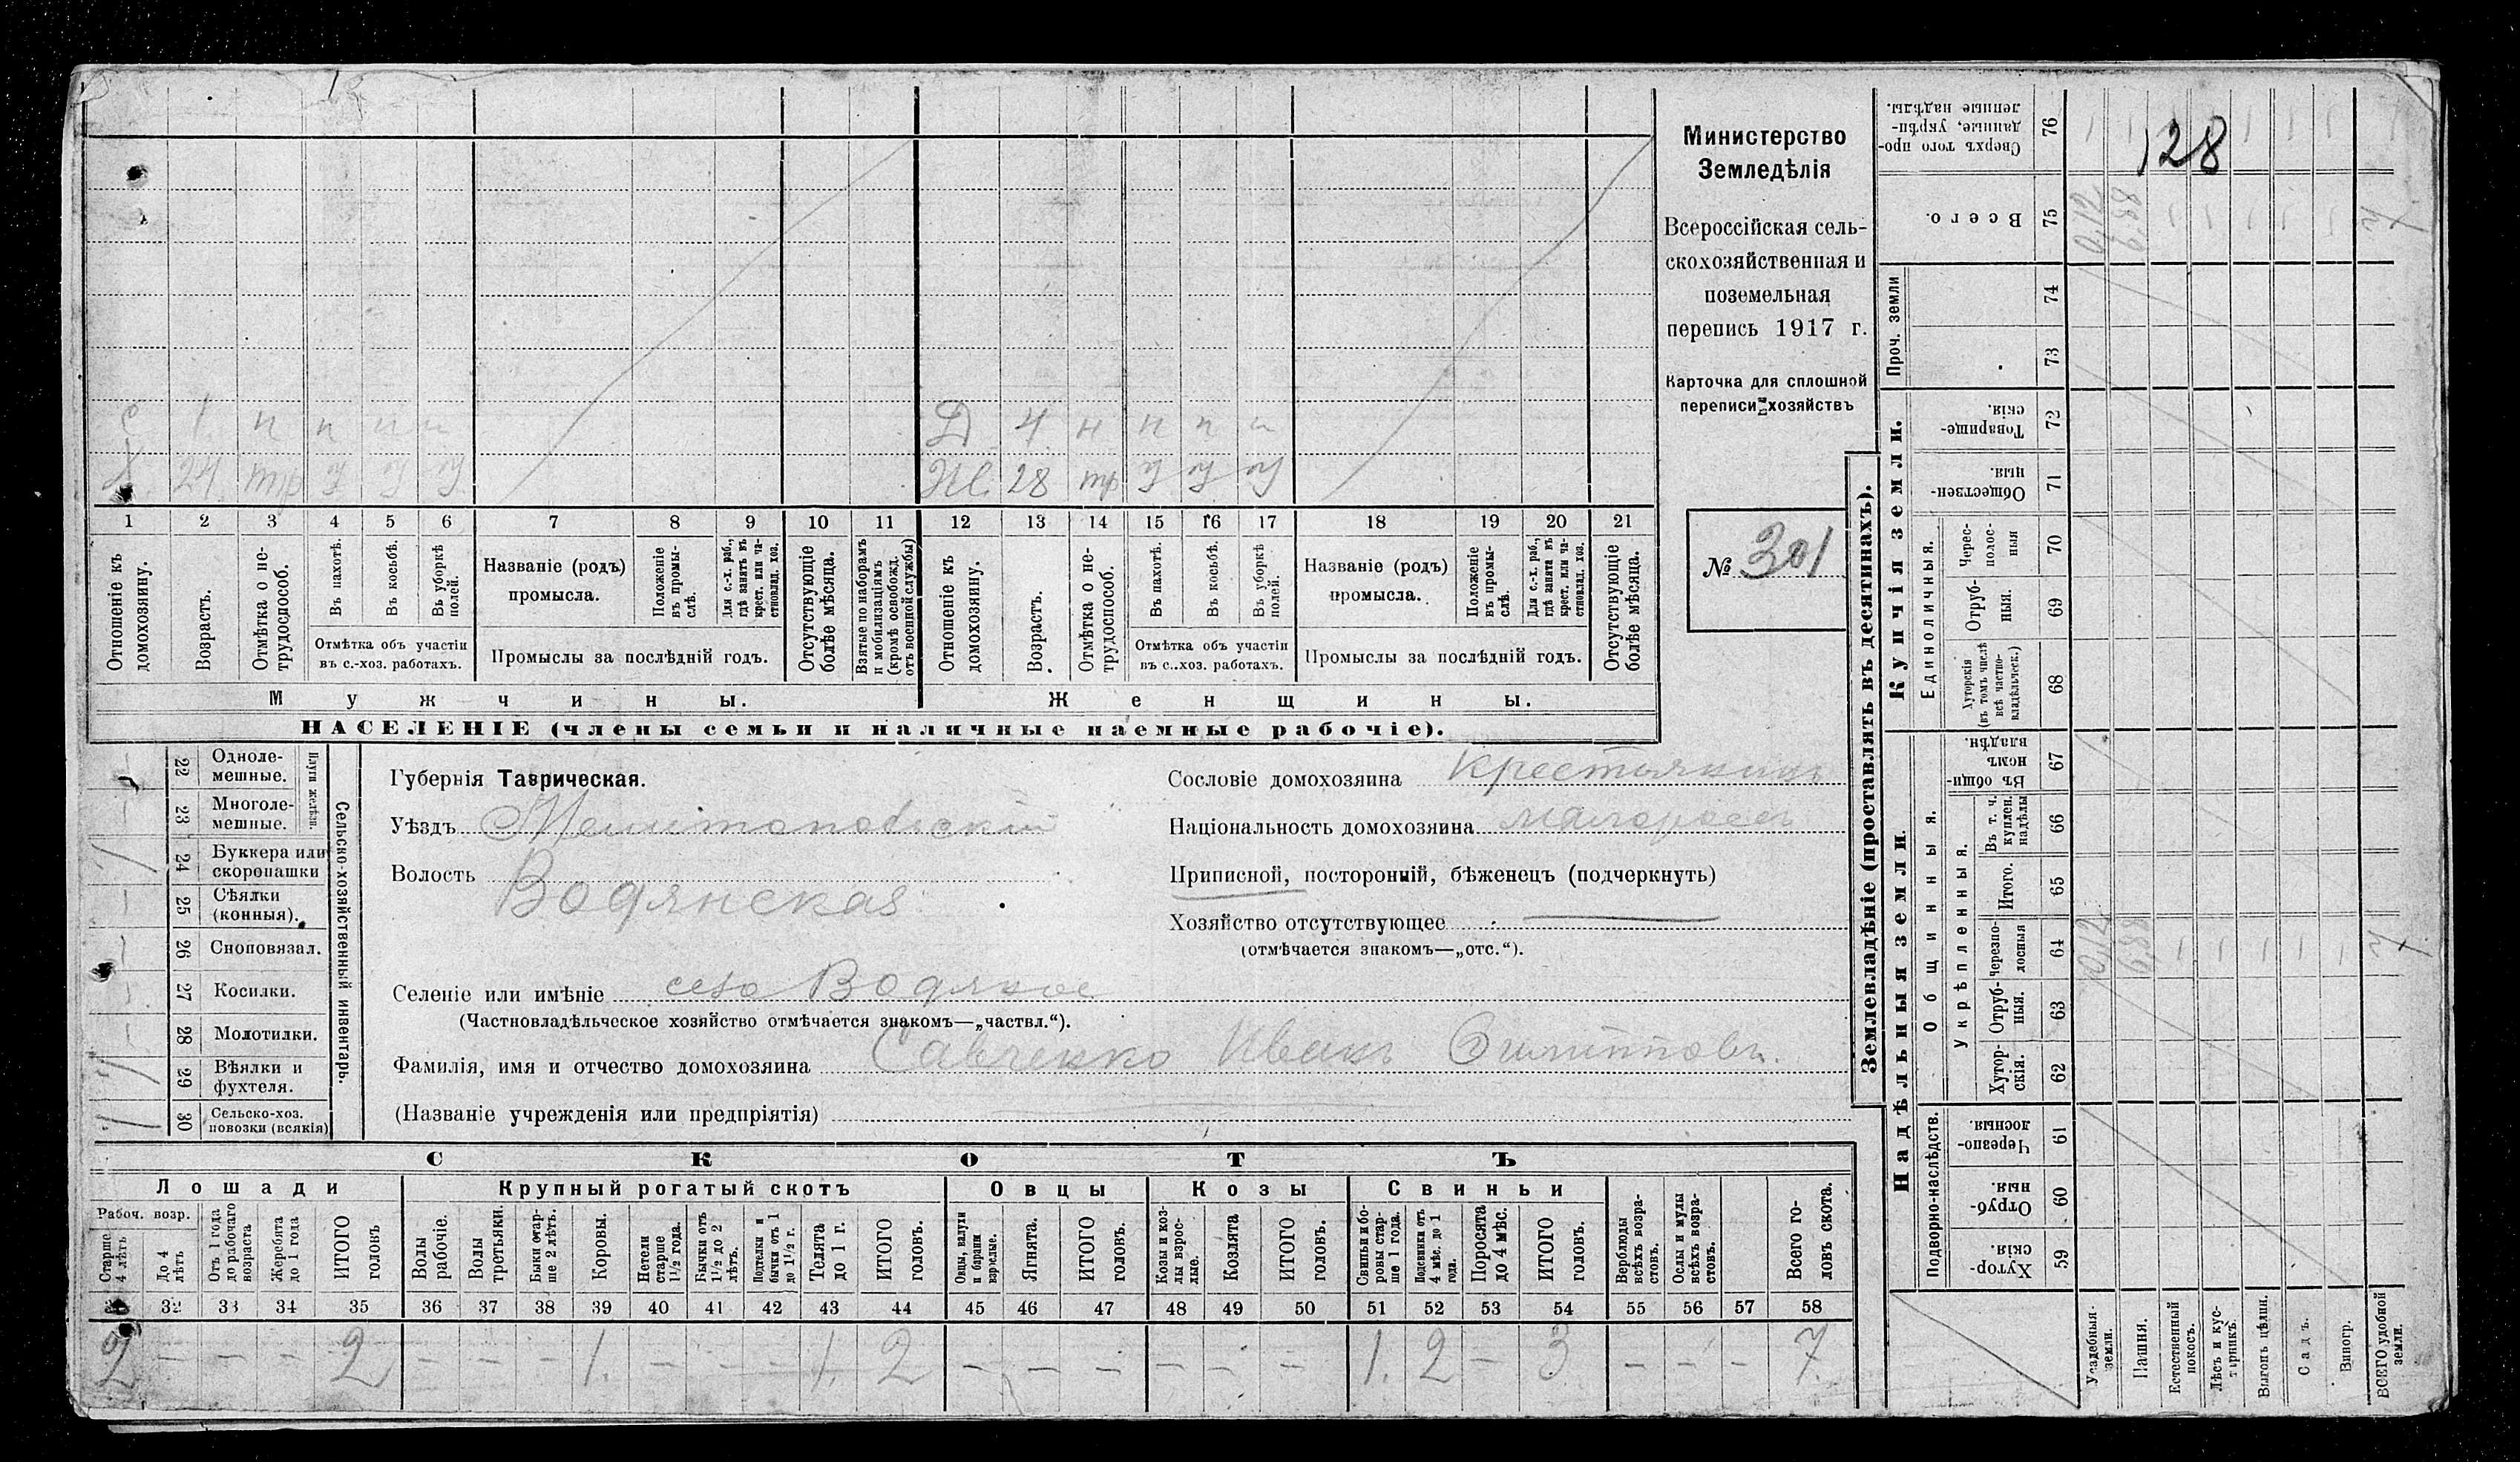 128
Министерство
Земледѣлія
Всероссійская сель-
скохозяйственная и
поземельная
перепись 1917 г.
Карточка для сплошной
переписи хозяйствъ
№ 301
С 1 н н н н
Х 24
Д 4 н н н н
Ж. 28
1 2 3 4 5 6 7 8 9 10 11 12 13 14 15 16 17 18 19 20 21
Отношеніе къ домохозяину.
Возрастъ.
Отмѣтка о не-трудоспособ.
Въ пахотѣ.
Въ косьбѣ.
Въ уборкѣ полей.
Отмѣтка объ участіи
въ с.-хоз. работахъ.
Названіе (родъ)
промысла.
Положеніе въ промы-слѣ.
Для с.-х. раб., гдѣ занятъ въ крест. или ча-стновлад. хоз.
Промыслы за послѣдній годъ.
Отсутствующіе болѣе мѣсяца.
Взятые по наборамъ и мобилизаціямъ (кромѣ освобожд. отъ военной службы)
Отношеніе къ домохозяину.
Возрастъ.
Отмѣтка о не-трудоспособ.
Въ пахотѣ.
Въ косьбѣ.
Въ уборкѣ полей.
Отмѣтка объ участіи
въ с.-хоз. работахъ.
Названіе (родъ)
промысла.
Положеніе въ промы-слѣ.
Для с.-х. раб., гдѣ занята въ крест. или ча-стновлад. хоз.
Промыслы за послѣдній годъ.
Отсутствующіе болѣе мѣсяца.
Мужчины.
Женщины.
НАСЕЛЕНІЕ (члены семьи и наличные наемные рабочіе).
Сельско-хозяйственный инвентарь.
Плуги желѣзн.
22 Одноле-мешные.
23 Многоле-мешные.
24 Буккера или скоропашки
25 Сѣялки (конныя).
26 Сноповязал.
27 Косилки.
28 Молотилки.
29 Вѣялки и фухтеля.
30 Сельско-хоз. повозки (всякія)
Губернія Таврическая.
Уѣздъ Мелитопольскій
Волость Водянская
Селеніе или имѣніе село Водяное
(Частновладѣльческое хозяйство отмѣчается знакомъ—„частвл.“).
Сословіе домохозяина Крестьянинъ
Національность домохозяина малороссъ
Приписной, посторонній, бѣженецъ (подчеркнуть)
Хозяйство отсутствующее
(отмѣчается знакомъ—„отс.“).
Фамилія, имя и отчество домохозяина Савченко Иванъ Филипповъ.
(Названіе учрежденія или предпріятія)
СКОТЪ
Лошади Крупный рогатый скотъ Овцы Козы Свиньи
Рабоч. возр.
Старше 4 лѣтъ
До 4 лѣтъ
Отъ 1 года до рабочаго возраста
Жеребята до 1 года
ИТОГО головъ
Волы рабочіе.
Волы третьяки.
Быки стар-ше 2 лѣтъ.
Коровы.
Нетели старше 1½ года.
Бычки отъ 1½ до 2 лѣтъ.
Подтелки и бычки отъ 1 до 1½ г.
Телята до 1 г.
ИТОГО головъ.
Овцы, валухи и бараны взрослые.
Ягнята.
ИТОГО головъ.
Козы и коз-лы взрос-лые.
Козлята
ИТОГО головъ.
Свиньи и бо-ровы стар-ше 1 года.
Подсвинки отъ 4 мѣс. до 1 года.
Поросята до 4 мѣс.
ИТОГО головъ.
Верблюды всѣхъ возра-стовъ.
Ослы и мулы всѣхъ возра-стовъ.
Всего го-ловъ скота.
31 32 33 34 35 36 37 38 39 40 41 42 43 44 45 46 47 48 49 50 51 52 53 54 55 56 57 58
2 — — — 2 — — — 1. — — — 1. 2 — — — — — — 1. 2 — 3 — — — 7.
Землевладѣніе (проставлять въ десятинахъ).
Сверхъ того про-данные, укрѣп-ленные надѣлы. 76
Всего. 75 0,12 6,88 7
Проч. земли 74
73
Купчія земли.
Товарище-скія. 72
Обществен-ныя. 71
Единоличныя.
Черес-полос-ныя 70
Отруб-ныя. 69
Хуторскія (въ томъ числѣ всѣ частно-владѣльческ.) 68
Надѣльныя земли.
Общинныя.
Въ общи-номъ владѣн. 67
Укрѣпленныя.
Въ т. ч. куплен. надѣлы 66
Итого. 65
Черезпо-лосныя 64 0,12 6,88 7
Отруб-ныя. 63
Хутор-скія. 62
Подворно-наслѣдств.
Черезпо-лосныя. 61
Отруб-ныя. 60
Хутор-скія. 59
Усадебныя земли.
Пашня.
Естественный покосъ.
Лѣсъ и кус-тарникъ.
Выгонъ цѣлин.
Садъ.
Виногр.
ВСЕГО удобной земли.